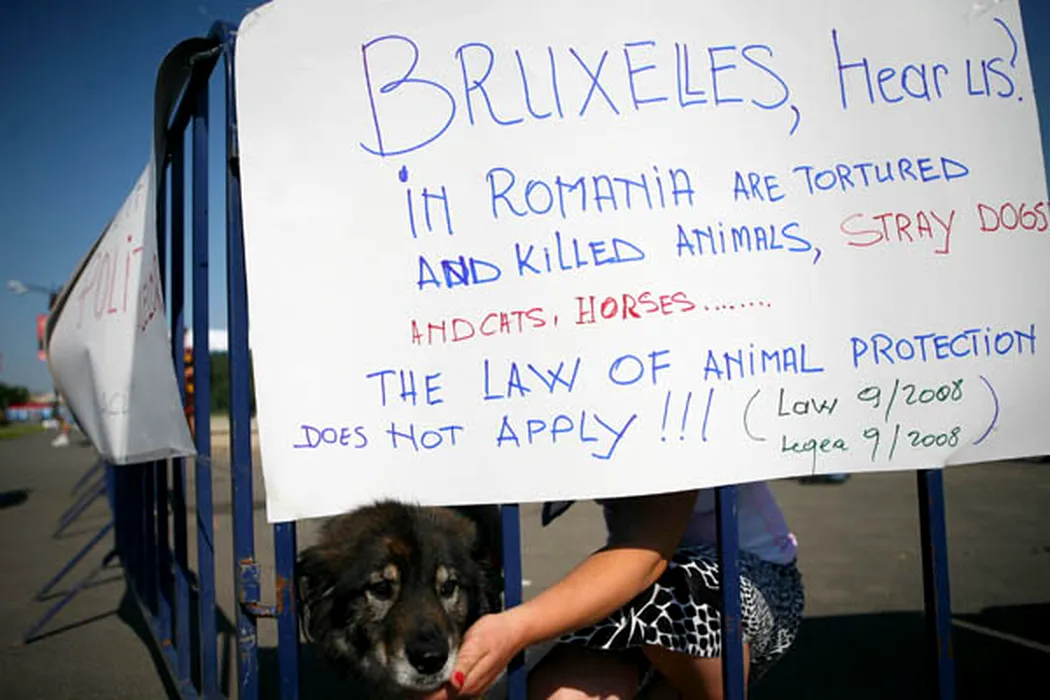 BRUXELLES, Hear US!
iN ROMANiA ARE TORTURED
AND KiLLED ANiMALS, STRAY DOGS
AND CATS, HORSES........
THE LAW OF ANiMAL PROTECTiON
DOES NOT APPLY !!! (Law 9/2008
Legea 9/2008)
POLiT